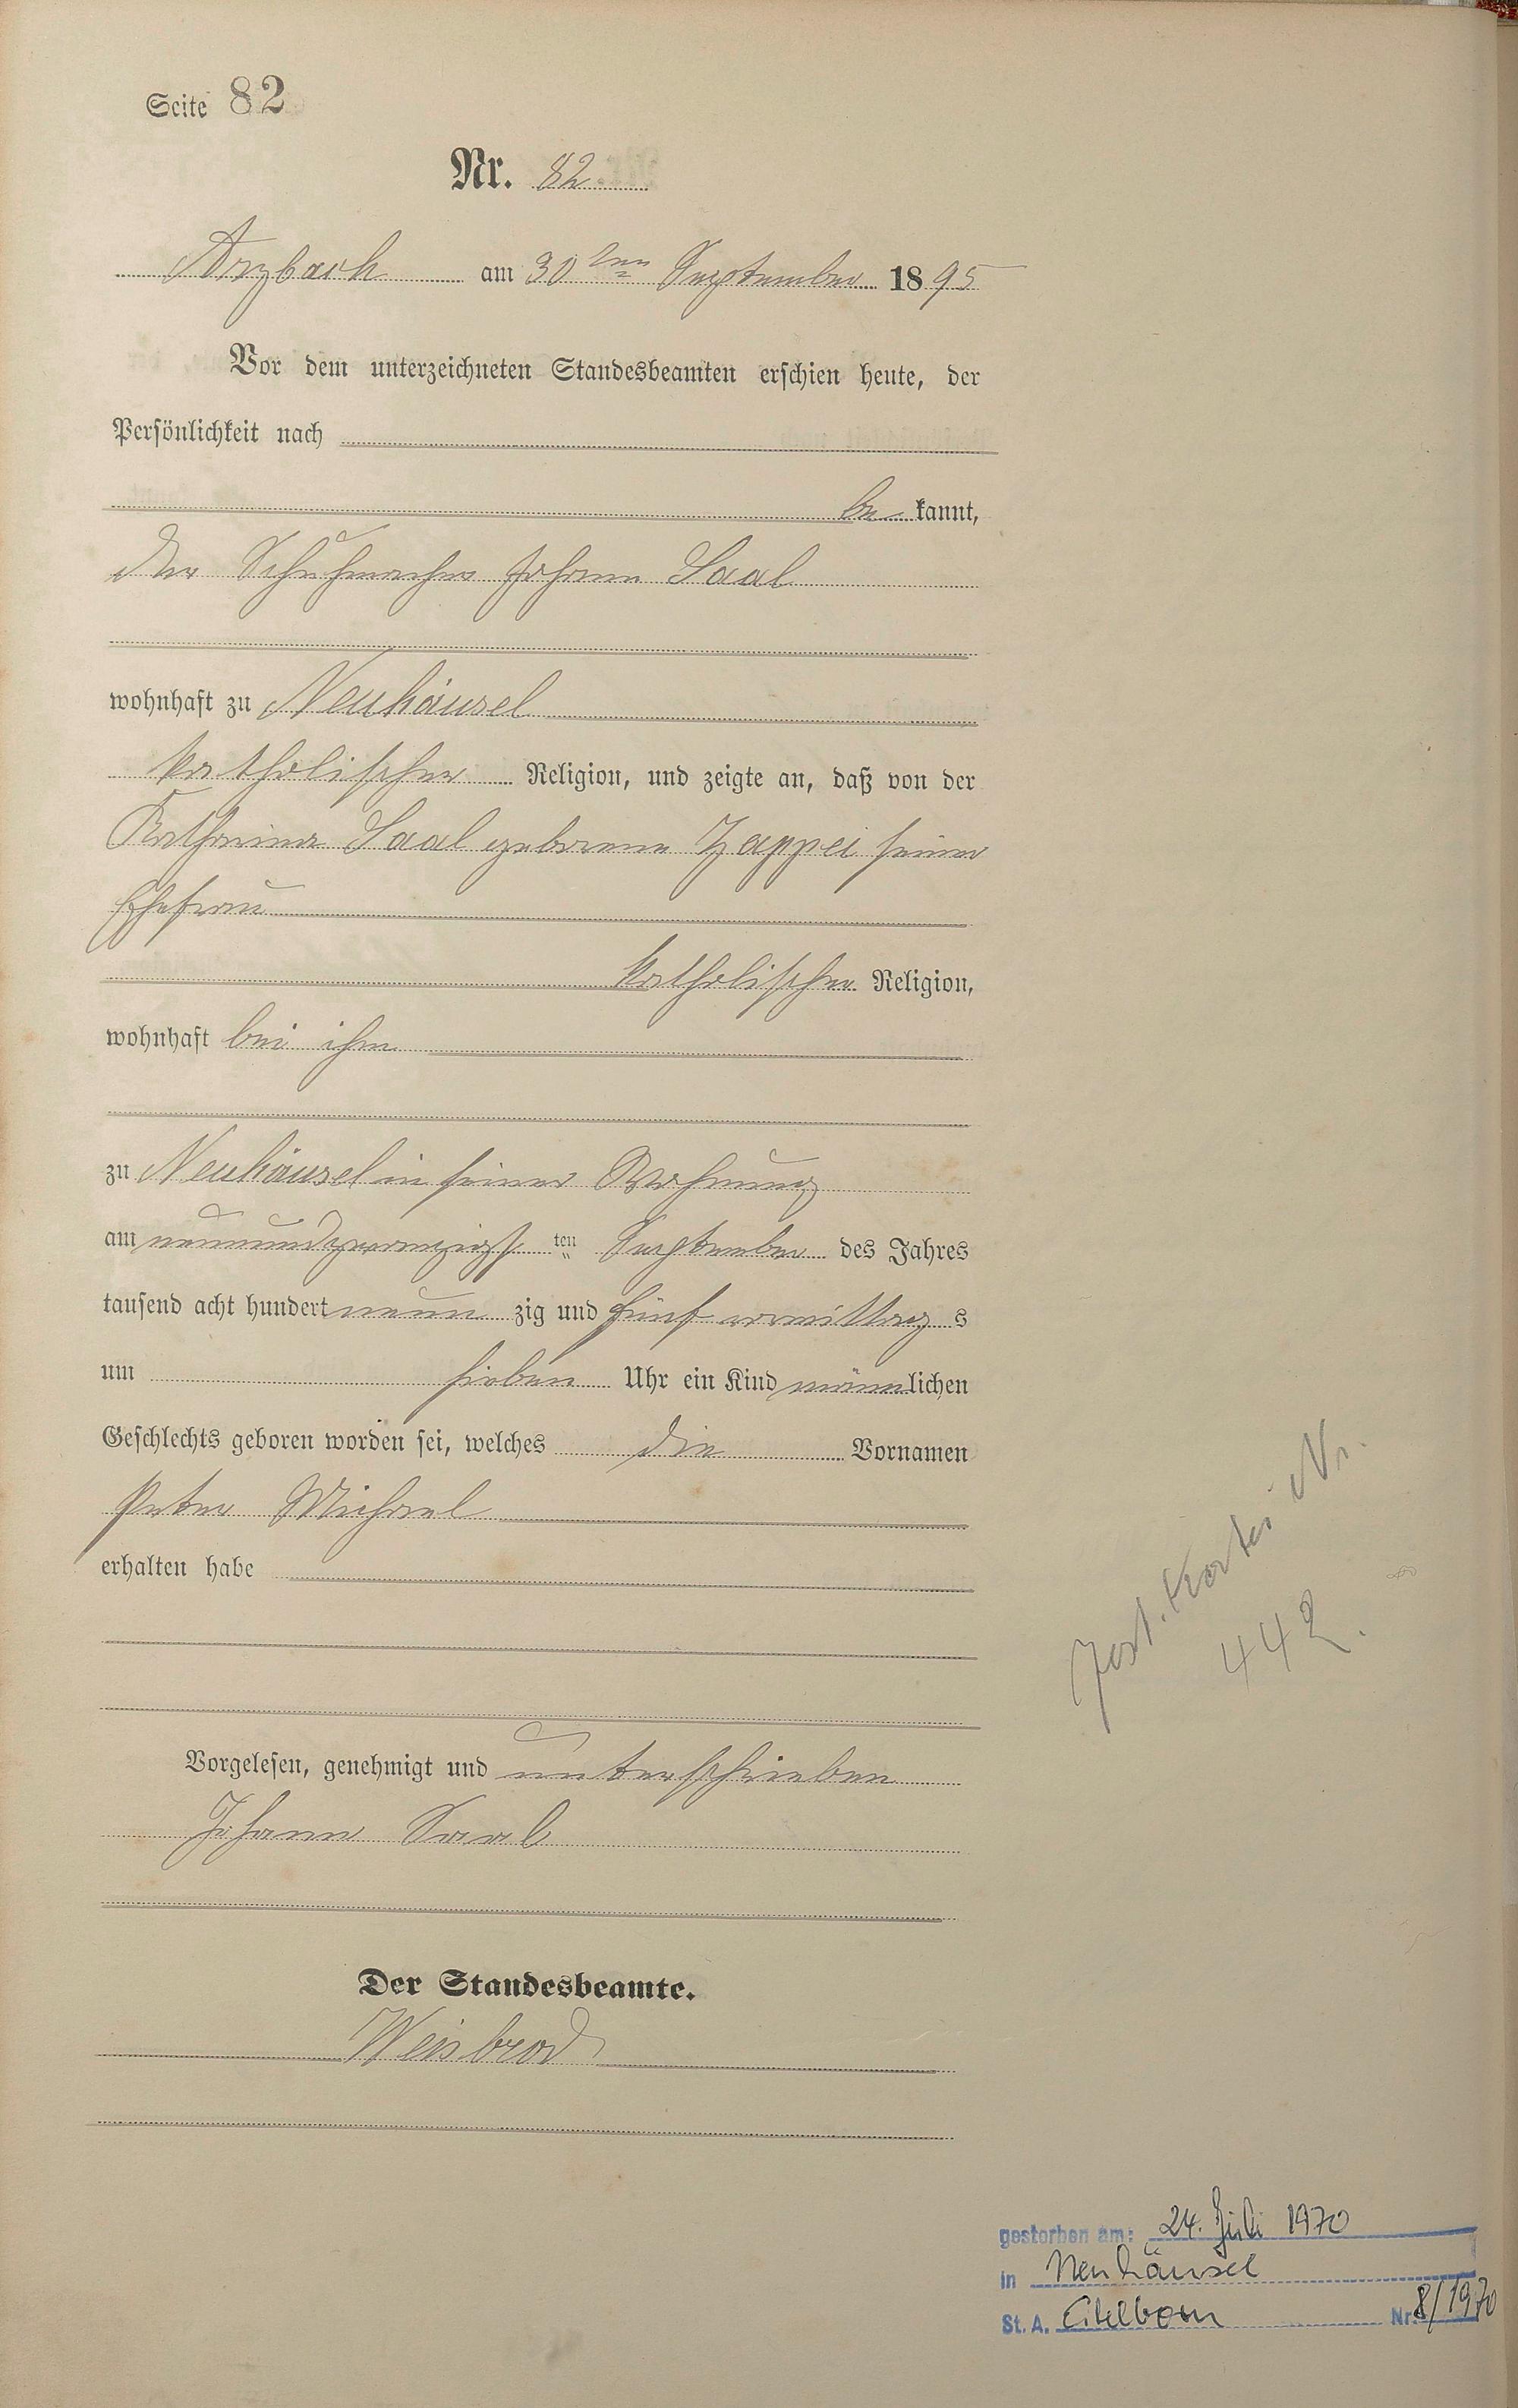 Seite 82
Nr. 82
Arzbach am 30ten September 1895
Vor dem unterzeichneten Standesbeamten erschien heute, der
Persönlichkeit nach
be kannt,
der Schuhmacher Johann Saal
wohnhaft zu Neuhäusel
katholischer Religion, und zeigte an, daß von der
Katharina Saal geborene Zappei seiner
Ehefrau
katholischer Religion,
wohnhaft bei ihm
zu Neuhäusel in seiner Wohnung
am neunundzwanzigs ten September des Jahres
tausend acht hundert neun zig und fünf vormittag s
um sieben Uhr ein Kind männlichen
Geschlechts geboren worden sei, welches die Vornamen
Peter Michael
erhalten habe
Vorgelesen, genehmigt und unterschrieben
Johann Saal
Der Standesbeamte.
Weisbrod
Kartei Nr.
442.
gestorben am: 24. Juli 1970
in Neuhäusel
St. A. Eitelborn Nr. 8/1970